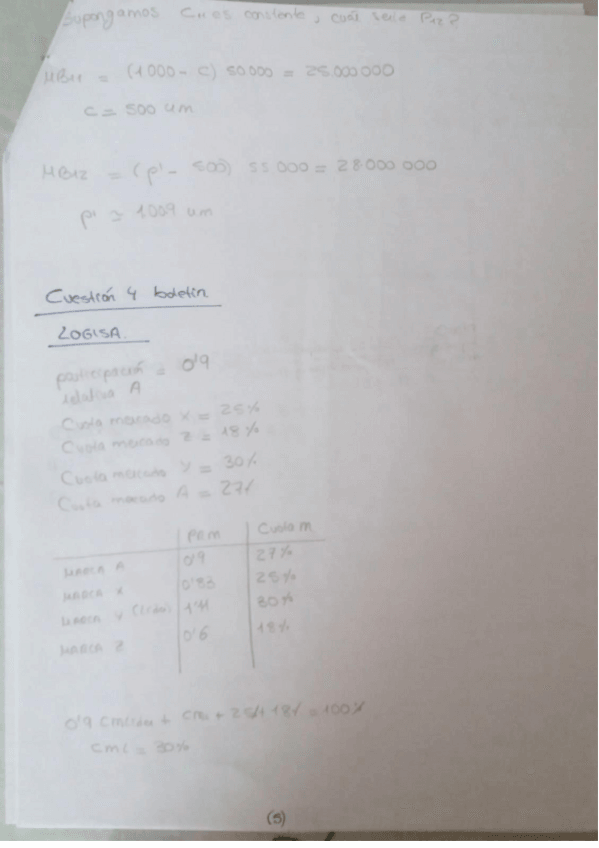 Supongamos C11 es constante, cuál sería P12?
MB11 = (1000 - C) 50.000 = 25.000.000
C = 500 um
MB12 = (p' - 500) 55.000 = 28.000.000
p' = 1009 um
Cuestión 4 boletín
LOGISA.
participación = 0'9
relativa A
Cuota mercado X = 25%
Cuota mercado Z = 18%
Cuota mercado Y = 30%
Cuota mercado A = 27%
PRM Cuota m
MARCA A 0'9 27%
MARCA X 0'83 25%
MARCA Y (líder) 1'11 30%
MARCA Z 0'6 18%
0'9 CmLíder + CmL + 25% + 18% = 100%
CmL = 30%
(5)